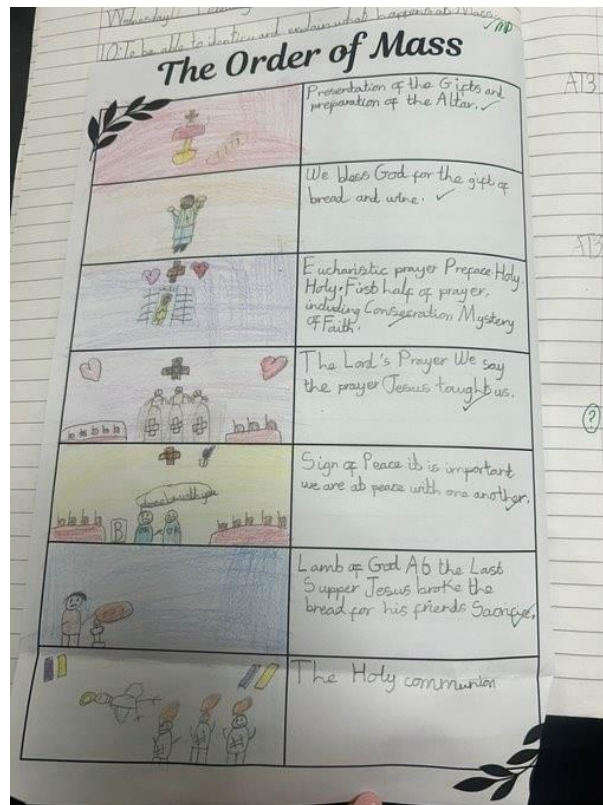 Wednesday
LO: To be able to identify and explain what happens at Mass.
The Order of Mass
AT3
Presentation of the Gifts and
preparation of the Altar.
We bless God for the gift of
bread and wine.
AT3
Eucharistic prayer Preface Holy,
Holy. First half of prayer,
including Consecration Mystery
of Faith.
The Lord's Prayer We say
the prayer Jesus taught us.
?
Sign of Peace it is important
we are at peace with one another.
peace be with you
B
Lamb of God At the Last
Supper Jesus broke the
bread for his friends Sacrifice.
The Holy communion